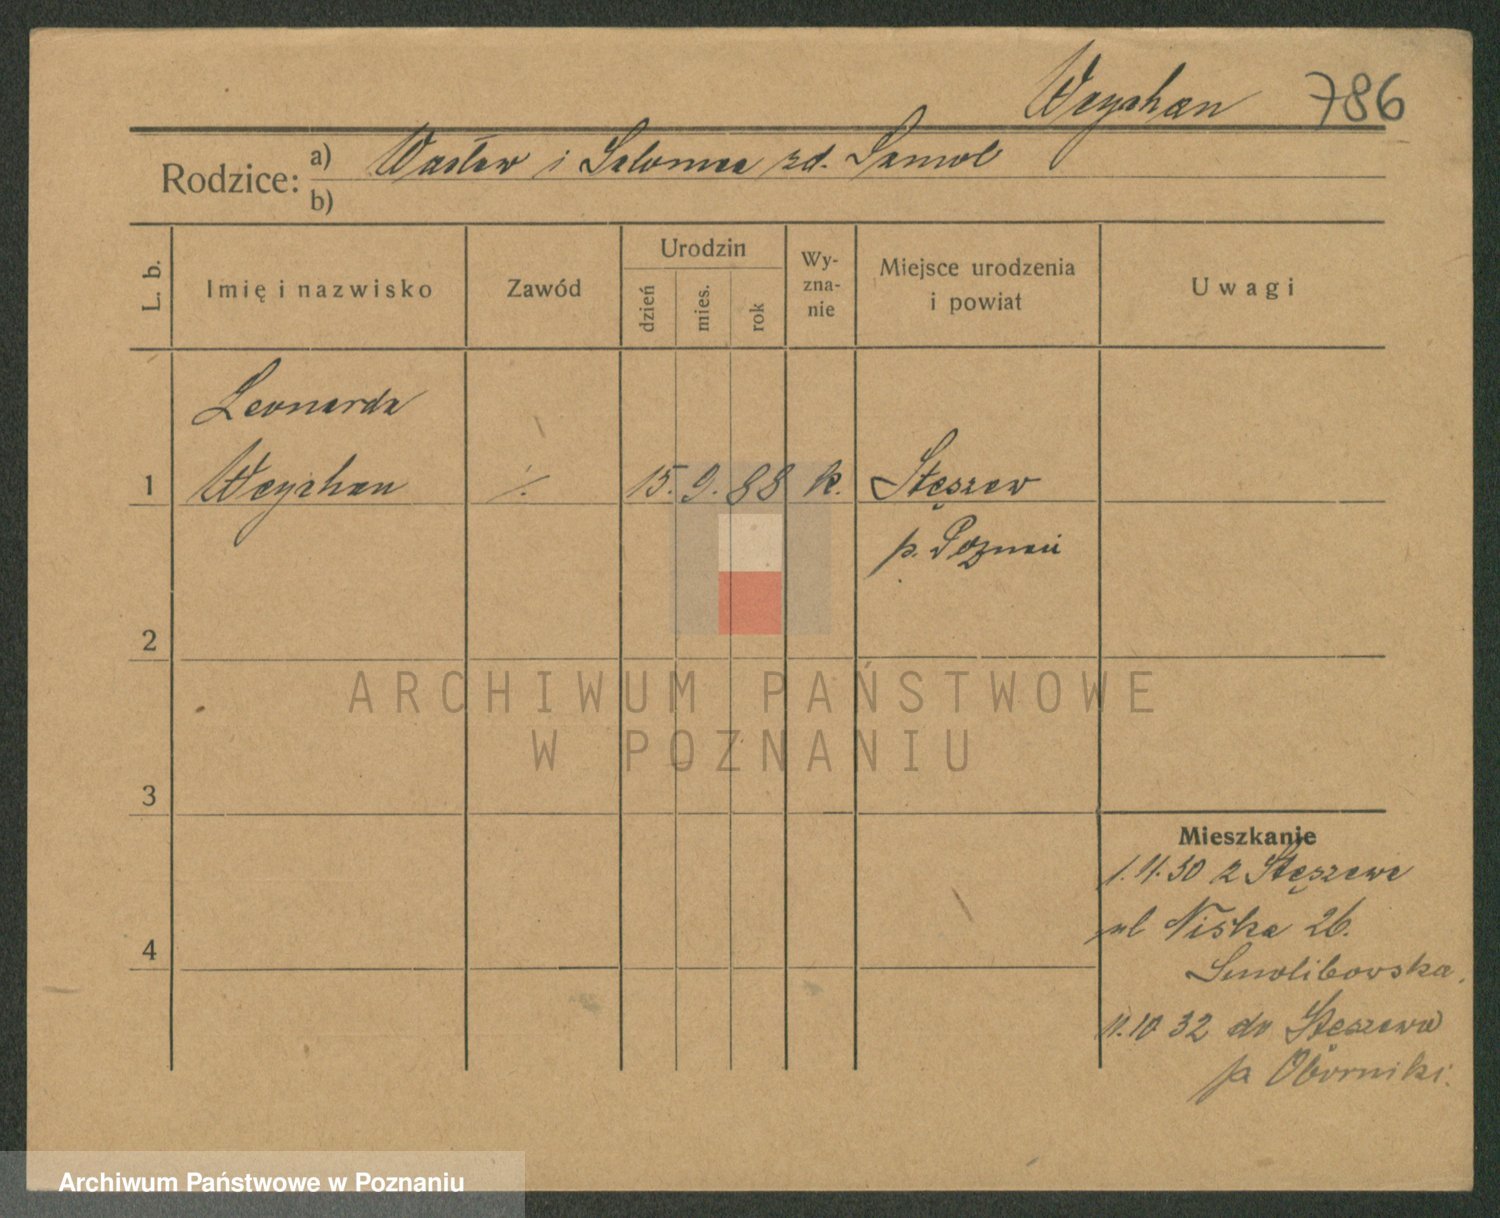 Weychan 786
Rodzice: a) Wacław i Salomea zd. Samol
b)
L. b. Imię i nazwisko Zawód Urodzin dzień mies. rok Wy-zna-nie Miejsce urodzenia i powiat Uwagi
Leonarda
1 Weychan ·/. 15. 9. 88 k. Stęszew
p. Poznań
2
ARCHIWUM PAŃSTWOWE
W POZNANIU
3
Mieszkanie
1.11.30 z Stęszewa
ul Niska 26.
4
Smolibowska.
11.10 32 do Stęszewa
p. Oborniki.
Archiwum Państwowe w Poznaniu